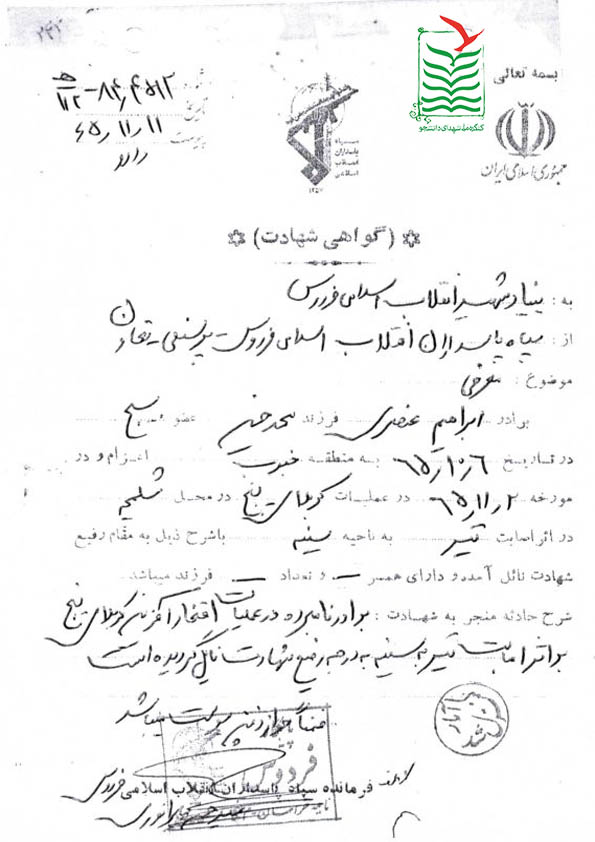 ۲۴۲
بسمه تعالی
جمهوری اسلامی ایران
کنگره ملی شهدای دانشجو
سپاه
پاسداران
انقلاب
اسلامی
۱۳۵۷
شماره
تاریخ ۶۵٫۱۱٫۱۱
پیوست دارد
(گواهی شهادت)
به : بنیاد شهید انقلاب اسلامی فردوس
از : سپاه پاسداران انقلاب اسلامی فردوس - پرسنلی - تعاون
موضوع : معرفی
برادر ابراهیم عنصری فرزند محمد حسین عضو بسیج
در تاریخ ۶۵٫۱۰٫۶ به منطقه جنوب اعزام و در
مورخه ۶۵٫۱۱٫۲ در عملیات کربلای پنج در محل شلمچه
در اثر اصابت تیر به ناحیه سینه باشرح ذیل به مقام رفیع
شهادت نائل آمده و دارای همسر — و تعداد — فرزند میباشد
شرح حادثه منجر به شهادت : برادر نامبرده در عملیات افتخار آفرین کربلای پنج
بر اثر اصابت تیر به سینه به درجه رفیع شهادت نایل گردیده است
ضمناً جواز دفن پیوست میباشد
فردوس
فرمانده سپاه پاسداران انقلاب اسلامی فردوس